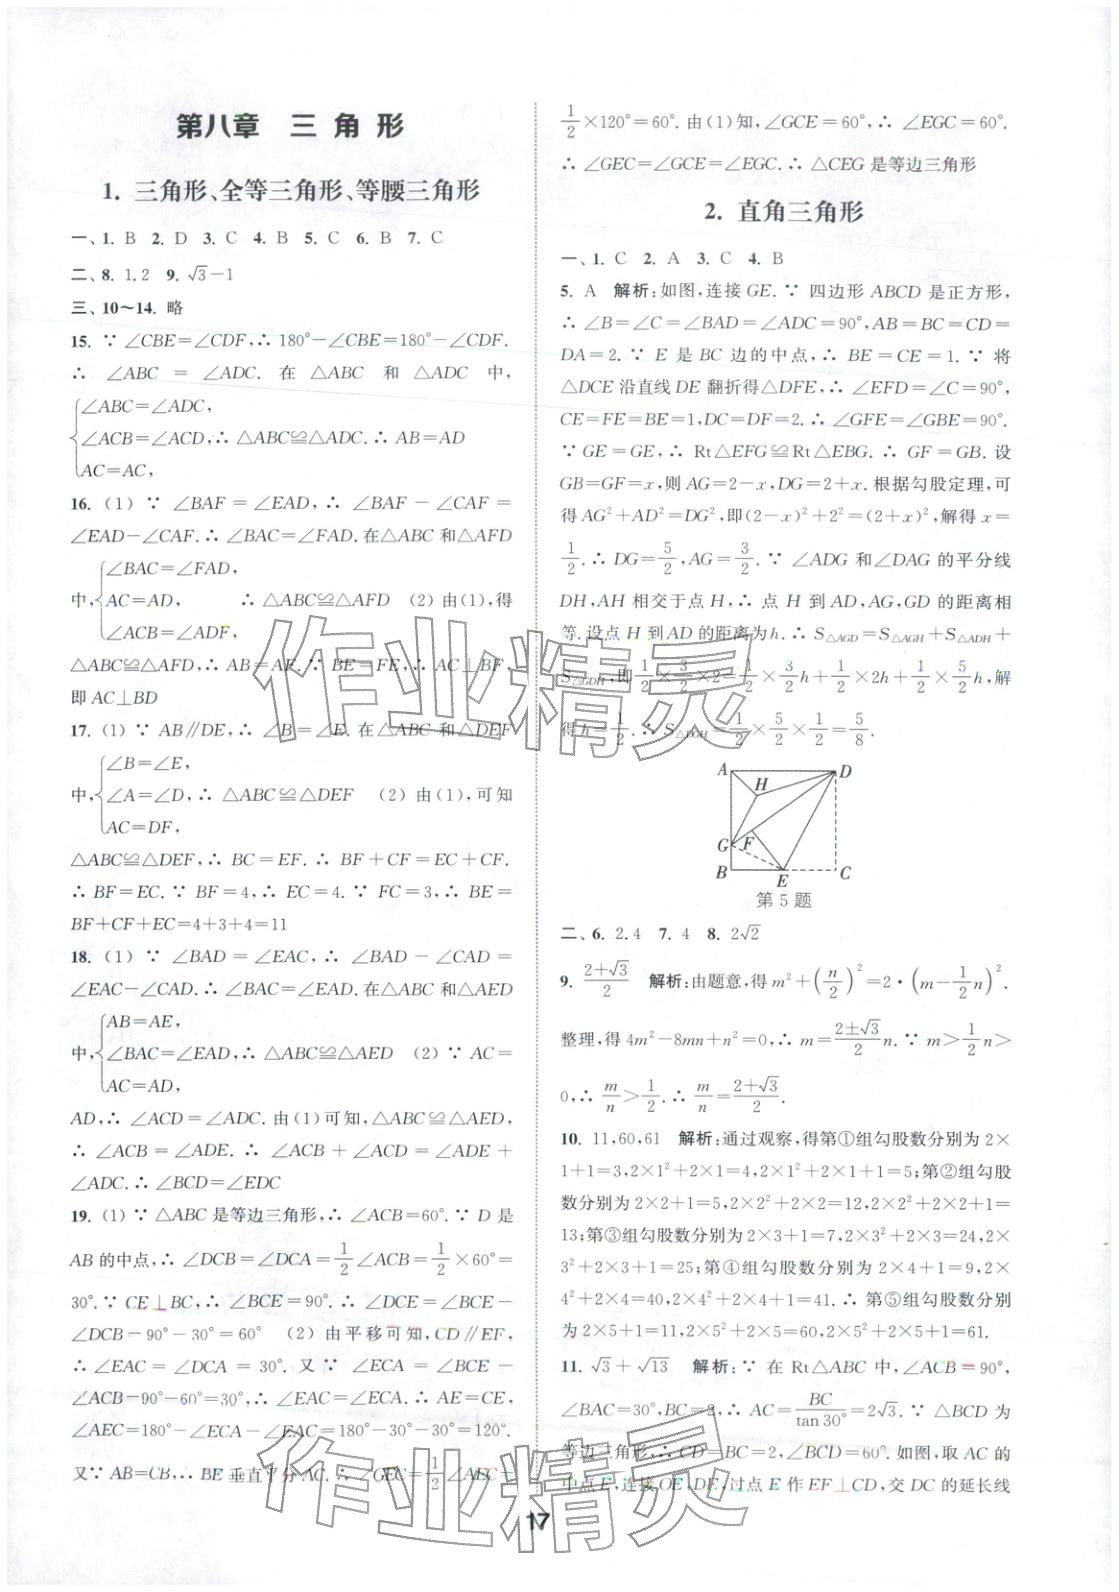 第八章 三 角 形
1. 三角形、全等三角形、等腰三角形
一、1. B 2. D 3. C 4. B 5. C 6. B 7. C
二、8. 1,2 9. √3-1
三、10～14. 略
15. ∵ ∠CBE=∠CDF,∴ 180°-∠CBE=180°-∠CDF.
∴ ∠ABC = ∠ADC. 在 △ABC 和 △ADC 中,
∠ABC=∠ADC,
∠ACB=∠ACD,∴ △ABC≌△ADC.∴ AB=AD
AC=AC,
16. (1) ∵ ∠BAF=∠EAD,∴ ∠BAF-∠CAF=
∠EAD-∠CAF.∴ ∠BAC=∠FAD.在△ABC 和△AFD
∠BAC=∠FAD,
中,{AC=AD, ∴ △ABC≌△AFD (2) 由(1),得
∠ACB=∠ADF,
△ABC≌△AFD,∴ AB=AF.∵ BE=FE,∴ AC⊥BF,
即 AC⊥BD
17. (1) ∵ AB∥DE,∴ ∠B=∠E.在△ABC 和△DEF
∠B=∠E,
中,{∠A=∠D,∴ △ABC≌△DEF (2) 由(1),可知
AC=DF,
△ABC≌△DEF,∴ BC=EF.∴ BF+CF=EC+CF.
∴ BF=EC.∵ BF=4,∴ EC=4.∵ FC=3,∴ BE=
BF+CF+EC=4+3+4=11
18. (1) ∵ ∠BAD=∠EAC,∴ ∠BAD-∠CAD=
∠EAC-∠CAD.∴ ∠BAC=∠EAD.在△ABC 和△AED
AB=AE,
中,{∠BAC=∠EAD,∴ △ABC≌△AED (2) ∵ AC=
AC=AD,
AD,∴ ∠ACD=∠ADC.由(1)可知,△ABC≌△AED,
∴ ∠ACB=∠ADE.∴ ∠ACB+∠ACD=∠ADE+
∠ADC.∴ ∠BCD=∠EDC
19. (1) ∵ △ABC 是等边三角形,∴ ∠ACB=60°.∵ D 是
AB 的中点,∴ ∠DCB=∠DCA=1/2∠ACB=1/2×60°=
30°.∵ CE⊥BC,∴ ∠BCE=90°.∴ ∠DCE=∠BCE-
∠DCB=90°-30°=60° (2) 由平移可知,CD∥EF,
∴ ∠EAC=∠DCA=30°. 又 ∵ ∠ECA=∠BCE-
∠ACB=90°-60°=30°,∴ ∠EAC=∠ECA.∴ AE=CE,
∠AEC=180°-∠ECA-∠EAC=180°-30°-30°=120°.
又∵ AB=CB,∴ BE 垂直平分 AC.∴ ∠GEC=1/2∠AEC=
1/2×120°=60°.由(1)知,∠GCE=60°,∴ ∠EGC=60°.
∴ ∠GEC=∠GCE=∠EGC.∴ △CEG 是等边三角形
2. 直角三角形
一、1. C 2. A 3. C 4. B
5. A 解析:如图,连接 GE.∵ 四边形 ABCD 是正方形,
∴ ∠B=∠C=∠BAD=∠ADC=90°,AB=BC=CD=
DA=2.∵ E 是 BC 边的中点,∴ BE=CE=1.∵ 将
△DCE 沿直线 DE 翻折得△DFE,∴ ∠EFD=∠C=90°,
CE=FE=BE=1,DC=DF=2.∴ ∠GFE=∠GBE=90°.
∵ GE=GE,∴ Rt△EFG≌Rt△EBG.∴ GF=GB.设
GB=GF=x,则 AG=2-x,DG=2+x.根据勾股定理,可
得 AG²+AD²=DG²,即(2-x)²+2²=(2+x)²,解得 x=
1/2.∴ DG=5/2,AG=3/2.∵ ∠ADG 和∠DAG 的平分线
DH,AH 相交于点 H,∴ 点 H 到 AD,AG,GD 的距离相
等.设点 H 到 AD 的距离为 h.∴ S△AGD=S△AGH+S△ADH+
S△GDH,即1/2×3/2×2=1/2×3/2h+1/2×2h+1/2×5/2h,解
得 h=1/2.∴ S△DGH=1/2×5/2×1/2=5/8.
A D H G F B E C
第 5 题
二、6. 2.4 7. 4 8. 2√2
9. (2+√3)/2 解析:由题意,得 m²+(n/2)²=2·(m-1/2n)².
整理,得 4m²-8mn+n²=0,∴ m=(2±√3)/2n.∵ m>1/2n>
0,∴ m/n>1/2.∴ m/n=(2+√3)/2.
10. 11,60,61 解析:通过观察,得第①组勾股数分别为 2×
1+1=3,2×1²+2×1=4,2×1²+2×1+1=5;第②组勾股
数分别为 2×2+1=5,2×2²+2×2=12,2×2²+2×2+1=
13;第③组勾股数分别为 2×3+1=7,2×3²+2×3=24,2×
3²+2×3+1=25;第④组勾股数分别为 2×4+1=9,2×
4²+2×4=40,2×4²+2×4+1=41.∴ 第⑤组勾股数分别
为 2×5+1=11,2×5²+2×5=60,2×5²+2×5+1=61.
11. √3+√13 解析:∵ 在 Rt△ABC 中,∠ACB=90°,
∠BAC=30°,BC=2,∴ AC=BC/tan 30°=2√3.∵ △BCD 为
等边三角形,∴ CD=BC=2,∠BCD=60°.如图,取 AC 的
中点 E,连接 OE,DE,过点 E 作 EF⊥CD,交 DC 的延长线
17
作业精灵
作业精灵